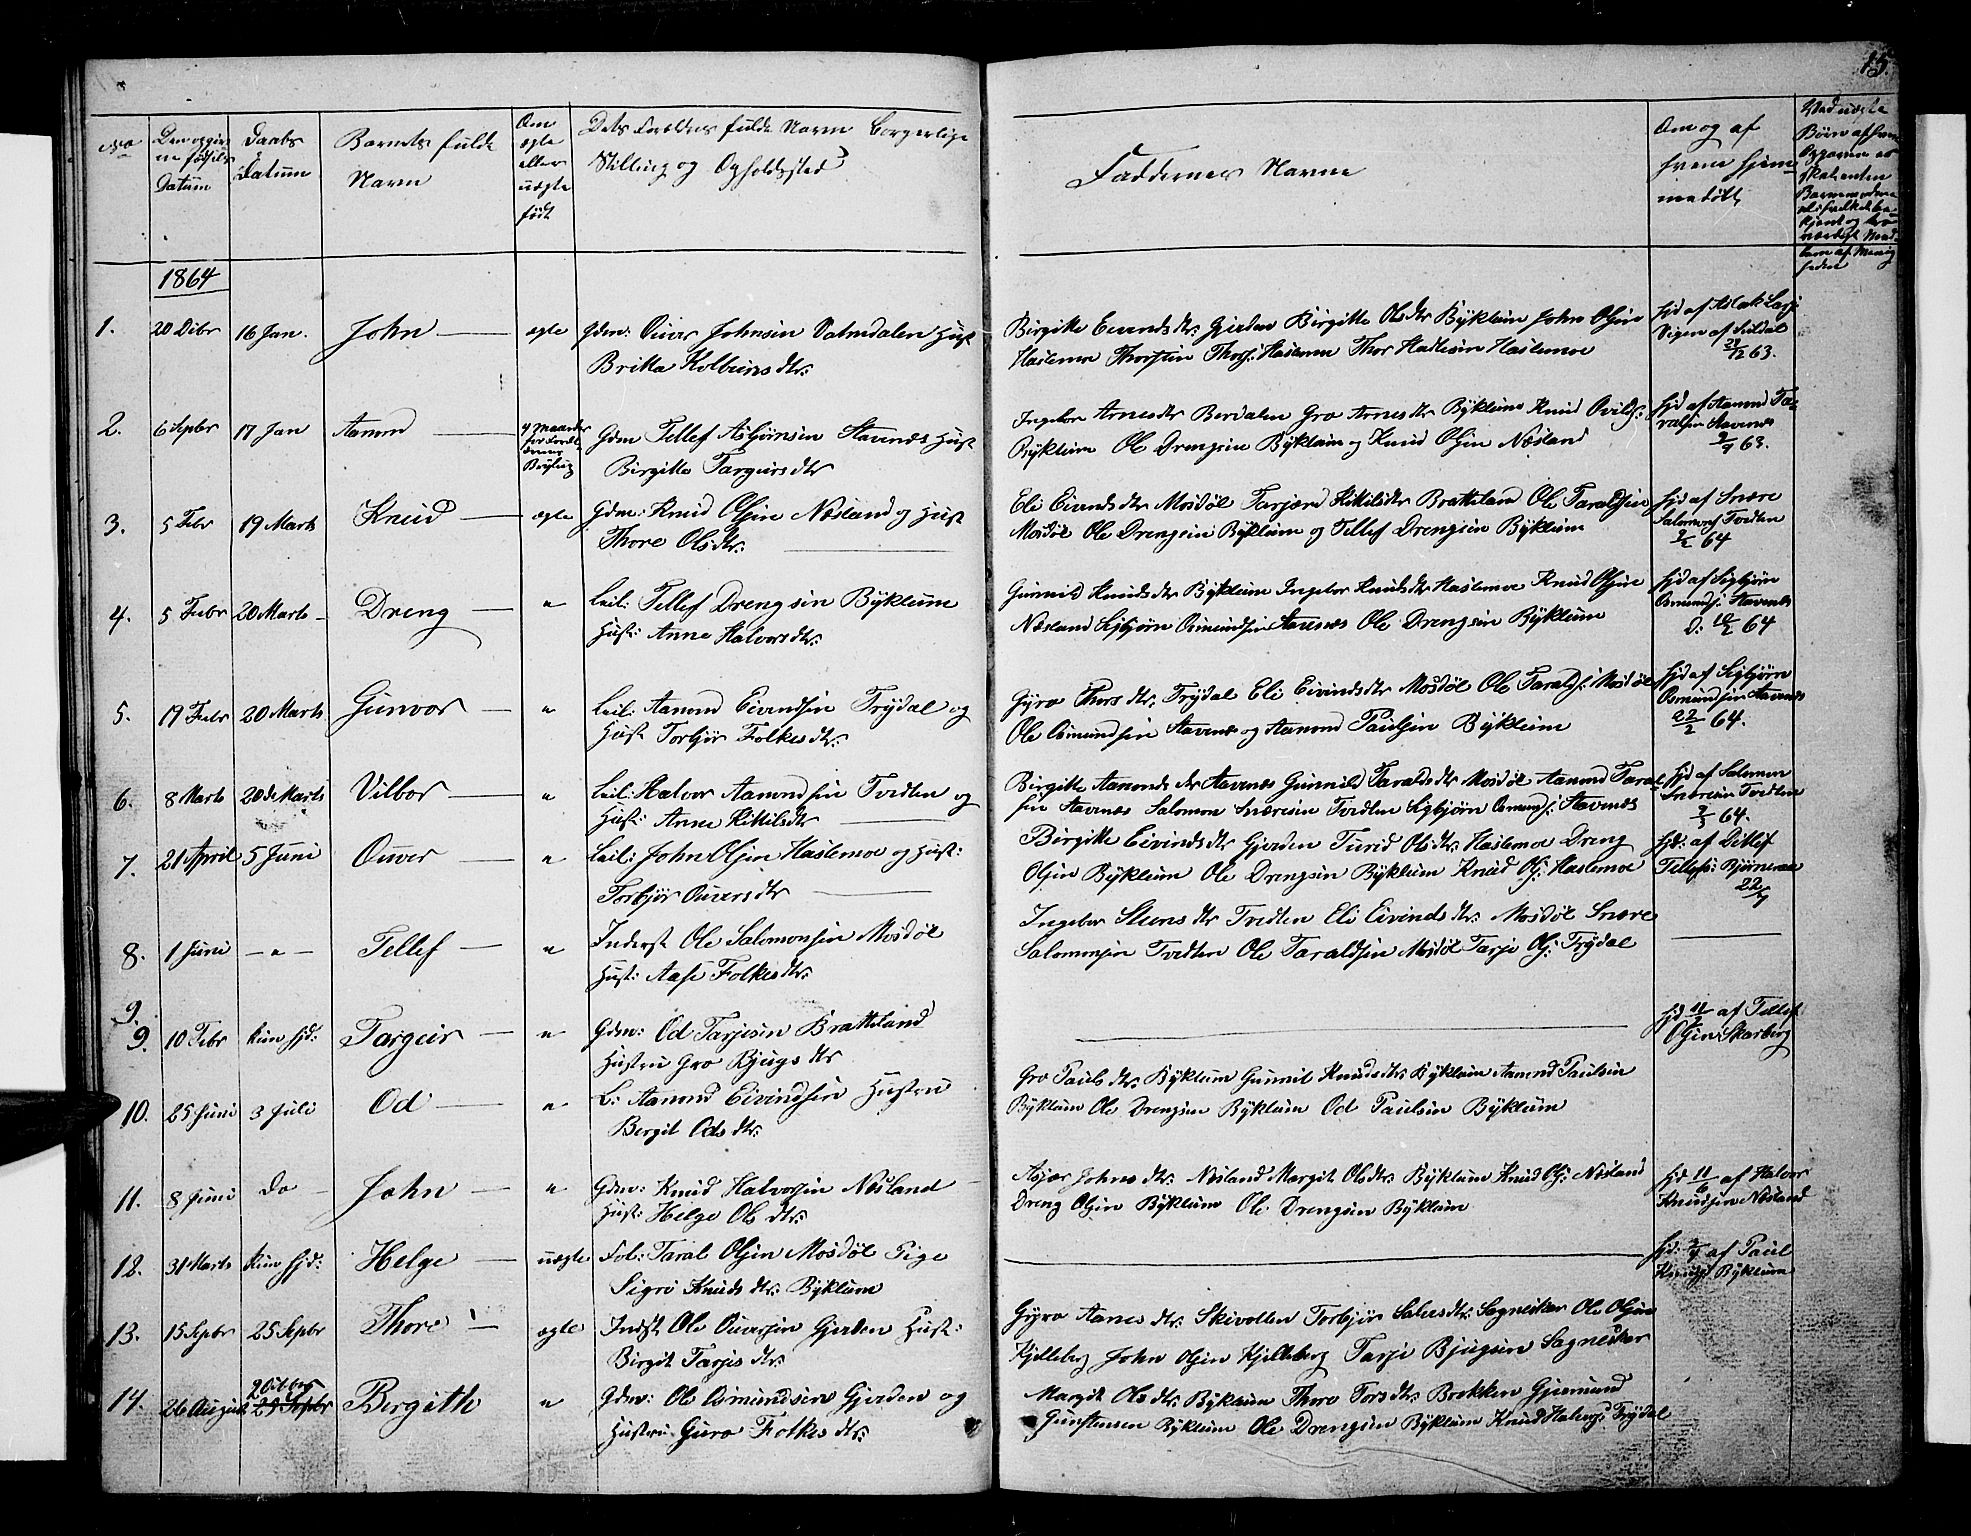 15.
No
Den opgiv
ne fødsels
Datum
Daabs
Datum
Barnets fulde
Navn
Om
ægte
eller
uægte
født
Dets Forældres fulde Navn borgerlige
Stilling og Opholdssted
Faddernes Navne
Om og af
hvem hjem
medøbt
1864
1. 20 Dcbr 16 Jan. John — ægte Gdm: Ouver Johnsen Vatndalen Hust
Britha Kolbeins dtr:
Birgitte Eivends dtr: Gjerden Birgitte Olsdtr Bÿkleim John Olsen
Haslemoe Thorstin Thors: Haslemoe Thor Hallesen Haslemoe
hjd af Aslak
af Suldal
29/12 63.
2. 6 Sepbr 17 Jan Aamon — Gdm Tellef Asbjørnsen Stavenæs Hust
Birgitte Targiers dtr
Ingebor Arnesdtr Berdalen Gro Arnesdtr Bÿkleim Knud
Bÿkleim Ole Drengsen Bÿkleim og Knud Olsen Næsland
hjd af Aamond Ta-
raldsen Stavenæs
9/9 63.
3. 5 Febr 19 Marts Knud — ægte Gdm: Knud Olsen Næsland og Hust
Thore Olsdtr: —
Eli Eivendsdtr Mosdøl Tarjerd Kittilsdtr Bratteland Ole Taraldsen
Mosdøl Ole Drengsen Bÿkleim og Tellef Drengsen Bÿkleim
hjd af Snære
Salomons Tvedten
9/2 64
4. 5 Febr 20 Marts – Dreng — " Leil: Tellef Drengsen Bÿkleim
Hust: Anne Halvorsdtr:
Gunnild Knudsdtr Bÿkleim Ingebor Knudsdtr Haslemoe Knud Olsen
Næsland Sigbjørn Osmundsen Stavenæs Ole Drengsen Bÿkleim
hjd af Sigbjørn
Osmunds: Stavenæs
d: 10/2 64
5. 19 Febr 20 Marts Gunvor — " Leil: Aamond Eivendsen Trÿdal og
Hust Torbjør Folkesdtr:
Gÿro Thors dtr: Trÿdal Eli Eivindsdtr Mosdøl Ole Taralds: Mosdøl
Ole Osmundsen Stavenæs og Aamond Paulsen Bÿkleim
hjd af Sigbjørn
Osmundsen Stavenæs
22/2 64.
6. 8 Marts 20de Marts Vilbor — " Leil: Halvor Aamondsen Tvedten og
Hust: Anne Kittilsdtr —
Birgitte Aamonds dtr Stavenæs Gunnild Taraldsdtr Mosdøl Aamond Tarald
sen Stavenæs Salomon Snæresen Tvedten Sigbjørn Osmunds: Stavenæs
hjd af Salomon
Snæresen Tvedten
9/3 64.
7. 21 April 5 Juni Ouver — " Leil: John Olsen Haslemoe og Hust:
Torbjør Ouversdtr —
Birgitte Eivindsdtr Gjerden Turid Olsdtr: Haslemoe Dreng
Olsen Bÿkleim Ole Drengsen Bÿkleim Knud Ols: Haslemoe
hjd: af Ditlef
Tellefs: Bjørneraa
22/4
8. 1 Juni — " — Tellef — " Inderst Ole Salomonsen Mosdøl
Hust: Aase Folkesdtr:
Ingebor Steens dtr Tvedten Eli Eivinds dtr: Mosdøl Snære
Salomonsen Tvedten Ole Taraldsen Mosdøl Tarje Ols: Trÿdal
9.
9. 10 Febr kun hjd: Targeir — " Gdm: Od Tarjesen Bratteland
Hustru Gro Bjugs dtr
hjd 11/2 af Tellef
Olsen Skarberg
10. 25 Juni 3 Juli Od — " L: Aamond Eivindsen Hustru
Bergit Ods dtr:
Gro Pauls dtr: Bÿkleim Gunnil Knudsdtr: Bÿkleim Aamond Paulsen
Bÿkleim Ole Drengsen Bÿkleim Od Paulsen Bÿkleim
11. 8 Juni Do – John — " Gdm: Knud Halvorsen Næsland –
Hust: Helge Ols dtr:
Asjær Johns dtr: Næsland Margit Olsdtr: Bÿkleim Knud Ols: Næsland
Dreng Olsen Bÿkleim Ole Drengsen Bÿkleim
hjd 11/6 af Halvor
Knudsen Næsland
12. 31 Marts kun hjd: Helge — uægte Fol: Taral Olsen Mosdøl Pige
Sigro Knuds dtr: Bÿkleim
hjd: 2/4 af Paul
Knuds: Bÿkleim
13. 15 Sepbr 25 Sepbr Thore — ægte Indst Ole Ouversen Gjerden Hust:
Birgit Tarjes dtr:
Gÿro Aanes dtr: Skivollen Torbjør Salvesdtr: Sagneskar Ole Olsen
Kjelleberg John Olsen Kjelleberg Tarje Bjugsen Sagneskar
14. 26 August 2 Octbr 25 Sepbr Bergith " Gdm: Ole Osmundsen Gjerden og
Hustru Guro Folkes dtr:
Margit Olsdtr: Bÿkleim Thore Torsdtr: Brokken Gjermund
Gunstensen Bÿkleim Ole Drengsen Bÿkleim Knud Halvors: Trÿdal